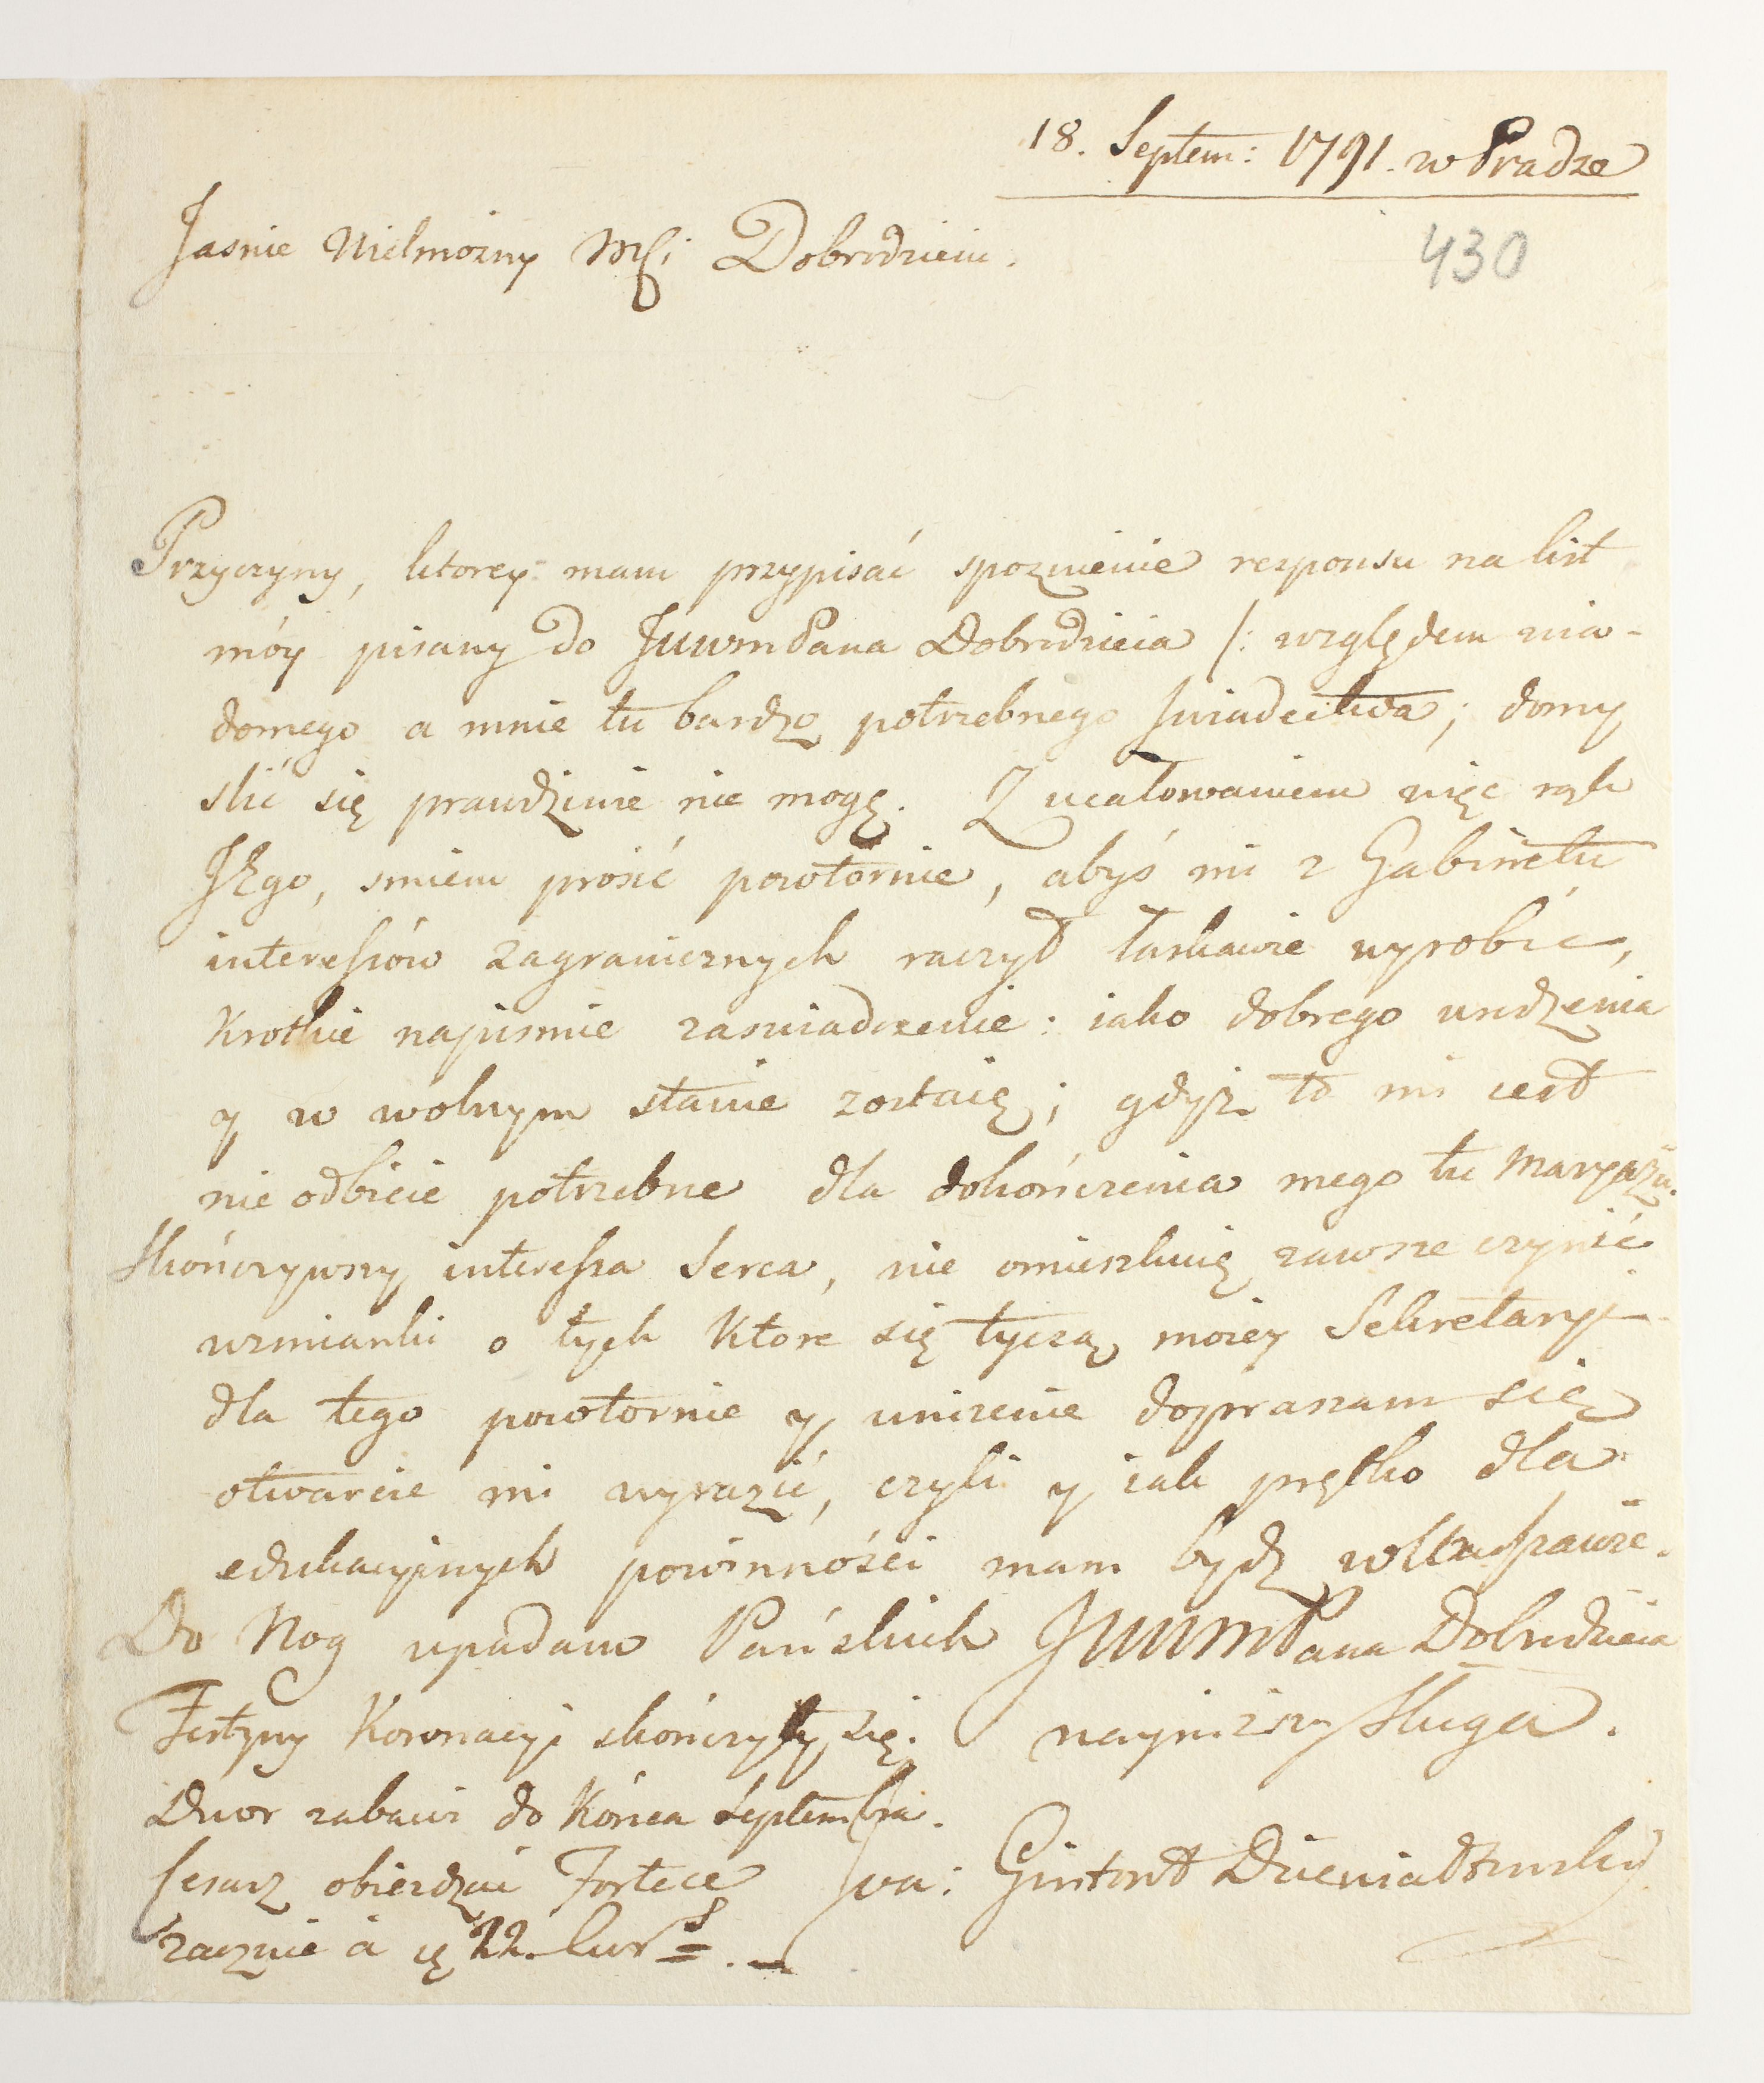 18. Septem: 1791. w Pradze
430
Jasnie Wielmożny Mći Dobrodzieiu.
Przyczyny, ktorey mam przypisać spoznienie responsu na list
móy pisany do JWWmPana Dobrodzieia /: względem wia-
domego a mnie tu bardzo potrzebnego swiadectwa; domy
slić się prawdziwie nie mogę. Z ucałowaniem więc rąk
Jego, smiem prosić powtornie, abyś mi z Gabinetu
interessów zagranicznych raczył łaskawie wyrobić,
Krotkie napismie zaswiadczenie: iako dobrego urodzenia
y w wolnym stanie zostaię; gdyż to mi iest
nie odbicie potrzebne dla dokończenia mego tu Maryażu.
Skończywszy interessa Serca, nie omieszkuię zawsze czynić
wzmianki o tych Ktore się tyczą moiey Sekretaryi
dla tego powtornie y unizenie dopraszam się
otwarcie mi wyrazić, czyli y iak prętko dla
edukacyinych powinności mam bydz w Warszawie.
Do Nog upadam Pańskich JWWmPana Dobrodzieia
Festyny Koronacyi skończyły się. nayniższy Sługa.
Dwor zabawi do Końca Septembra.
Cesarz obiezdzać Fortece Gintowt Dziewiałtowski
zacznie à 22. Cur